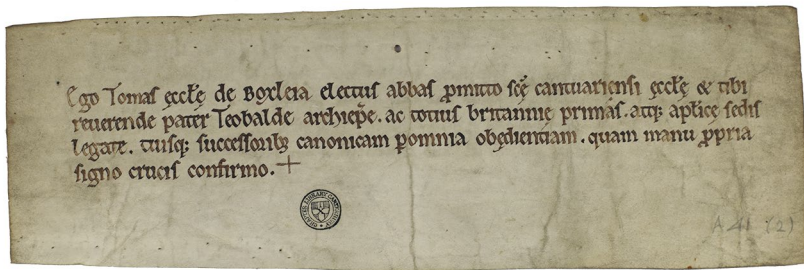 Ego Tomas ęccłę de Boxleia electus abbas ꝓmitto scę̄ cantuariensi ęccłę & tibi
reuerende pater Teobalde archiep̄e . ac totius britannie primas . atq; apłicę sedis
legate . tuisq; successorib; canonicam ꝑ omnia obędientiam . quam manu ꝓpria
signo crucis confirmo . +
CHAPTER LIBRARY CANTERBURY
A 41 (2)